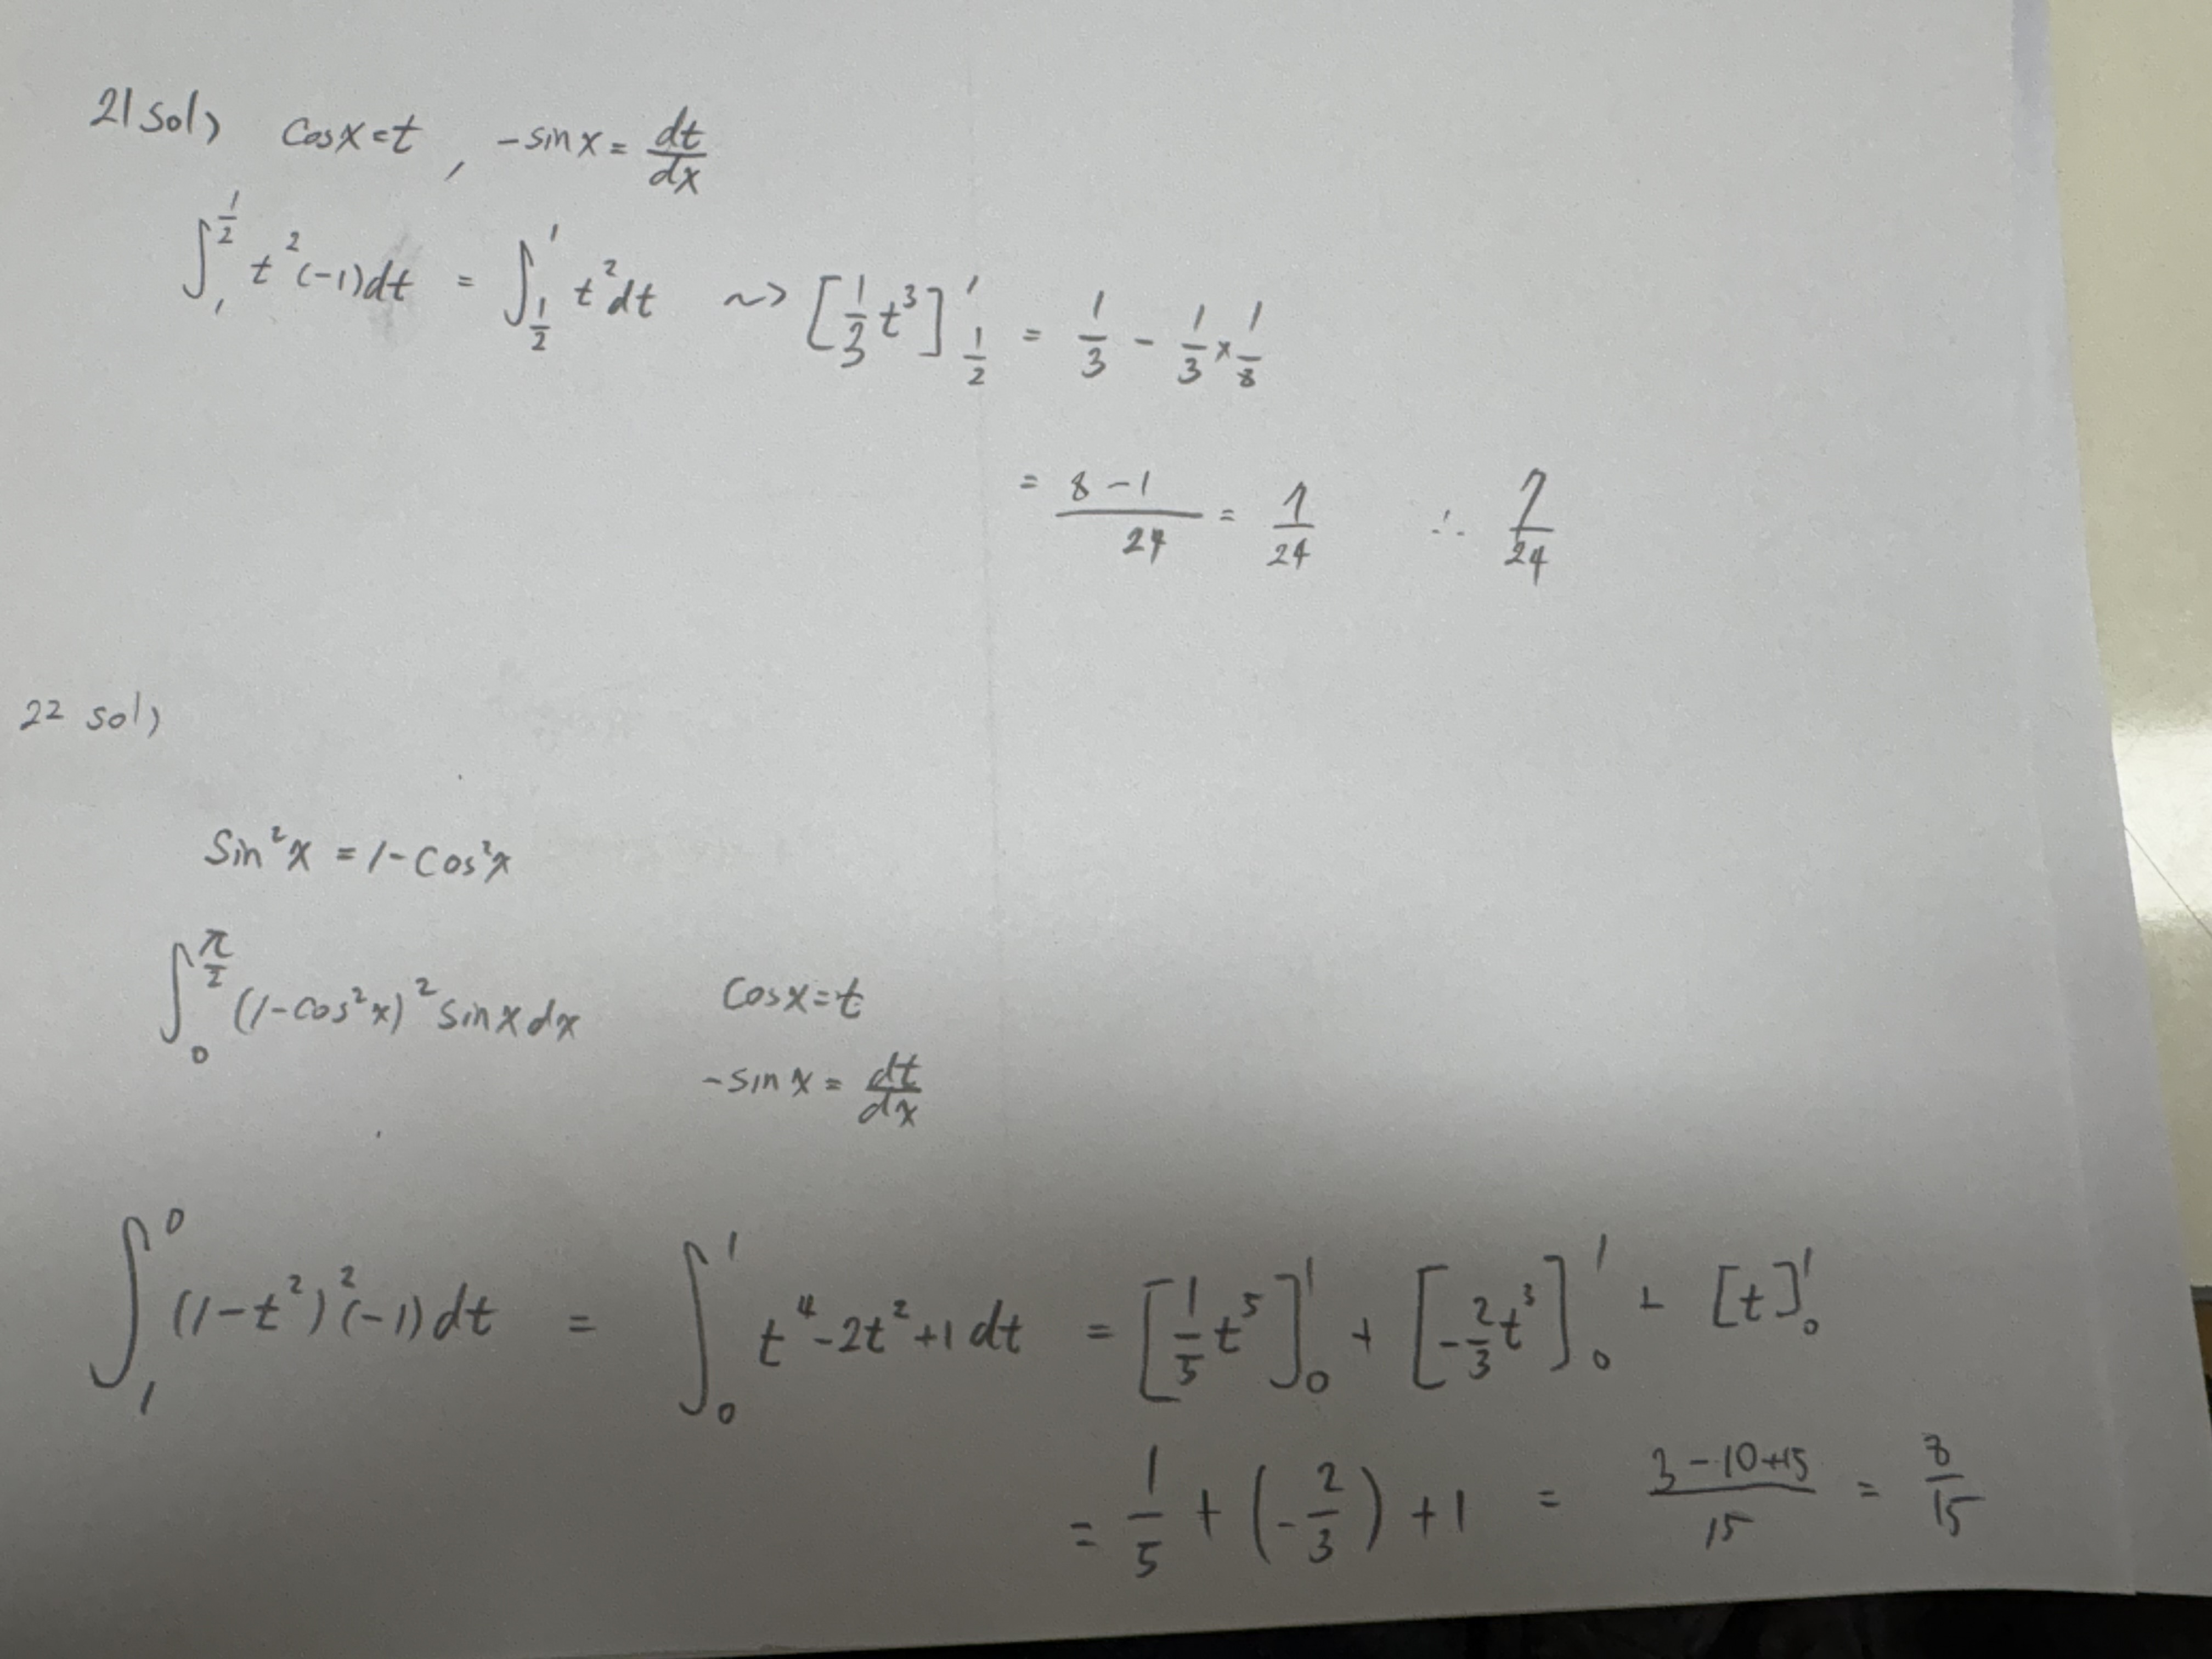 21 sol) cosx=t, -sinx = dt/dx
∫₁^(1/2) t²(-1)dt = ∫_(1/2)^1 t²dt ~> [1/3 t³]_(1/2)^1 = 1/3 - 1/3 × 1/8
= (8-1)/24 = 7/24 ∴ 7/24
22 sol)
Sin²x = 1-Cos²x
∫₀^(π/2) (1-cos²x)² sinx dx cosx=t
-sinx = dt/dx
∫₁⁰ (1-t²)²(-1)dt = ∫₀¹ t⁴-2t²+1 dt = [1/5 t⁵]₀¹ + [-2/3 t³]₀¹ + [t]₀¹
= 1/5 + (-2/3) + 1 = (3-10+15)/15 = 8/15